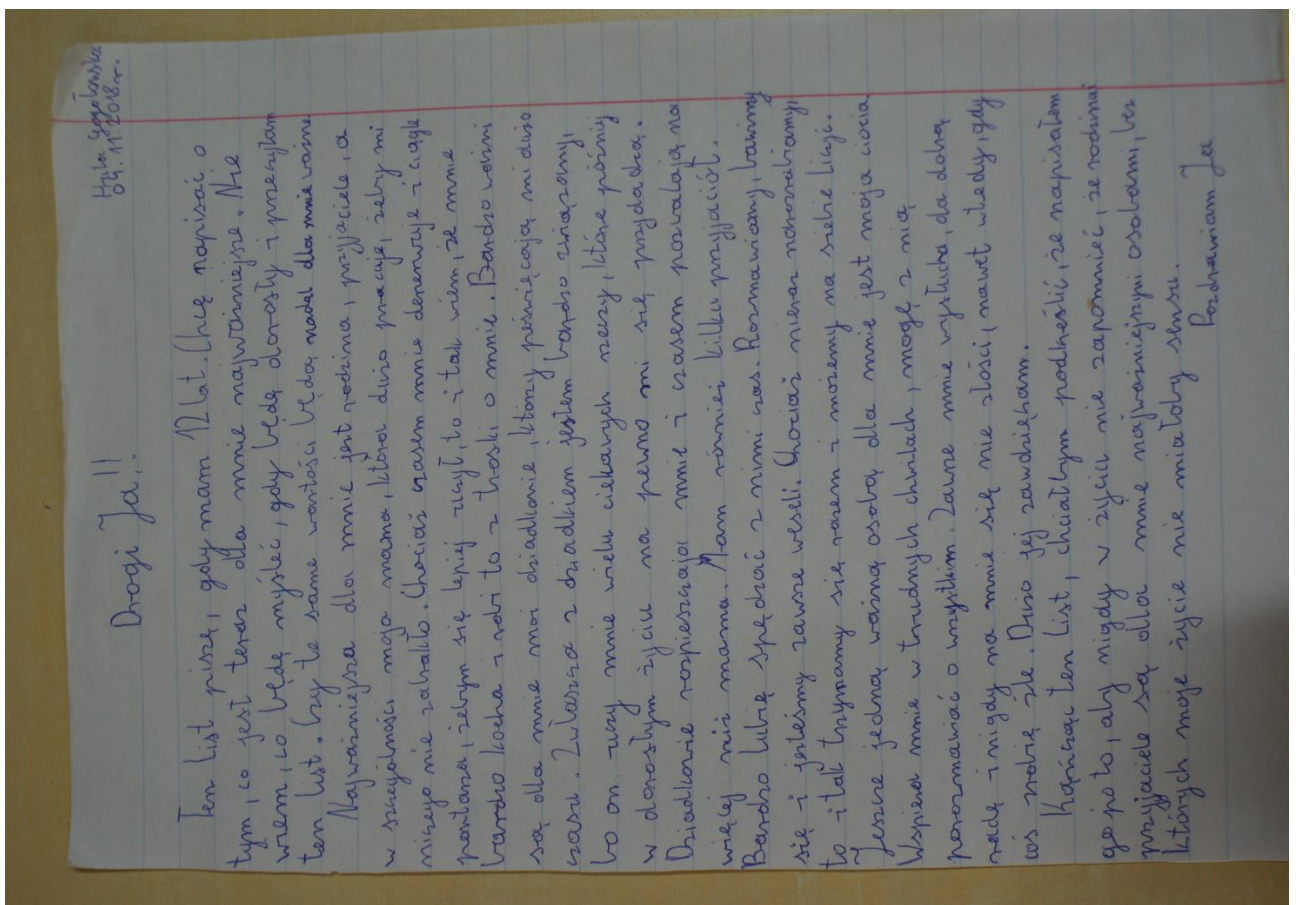 04.11.2018r.
Drogi Ja!!
Ten list piszę, gdy mam 12 lat. Chcę napisać o
tym, co jest teraz dla mnie najważniejsze. Nie
wiem, co będę myśleć, gdy będę dorosły i przeczytam
ten list. Czy te same wartości będą nadal dla mnie ważne
Najważniejsza dla mnie jest rodzina, przyjaciele, a
w szczególności moja mama, która dużo pracuje, żeby mi
niczego nie zabrakło. Chociaż czasem mnie denerwuje i ciągle
powtarza, żebym się lepiej uczył, to i tak wiem, że mnie
bardzo kocha i robi to z troski o mnie. Bardzo ważni
są dla mnie moi dziadkowie, którzy poświęcają mi dużo
czasu. Zwłaszcza z dziadkiem jestem bardzo związany,
bo on uczy mnie wielu ciekawych rzeczy, które później
w dorosłym życiu na pewno mi się przydadzą.
Dziadkowie rozpieszczają mnie i czasem pozwalają na
więcej niż mama. Mam również kilku przyjaciół.
Bardzo lubię spędzać z nimi czas. Rozmawiamy, bawimy
się i jesteśmy zawsze weseli. Chociaż nieraz narozrabiamy,
to i tak trzymamy się razem i możemy na siebie liczyć.
Jeszcze jedną ważną osobą dla mnie jest moja ciocia
Wspiera mnie w trudnych chwilach, mogę z nią
porozmawiać o wszystkim. Zawsze mnie wysłucha, da dobrą
radę i nigdy na mnie się nie złości, nawet wtedy, gdy
coś zrobię źle. Dużo jej zawdzięczam.
Kończąc ten list, chciałbym podkreślić, że napisałem
go po to, aby nigdy w życiu nie zapomnieć, że rodzina i
przyjaciele są dla mnie najważniejszymi osobami, bez
których moje życie nie miałoby sensu.
Pozdrawiam Ja